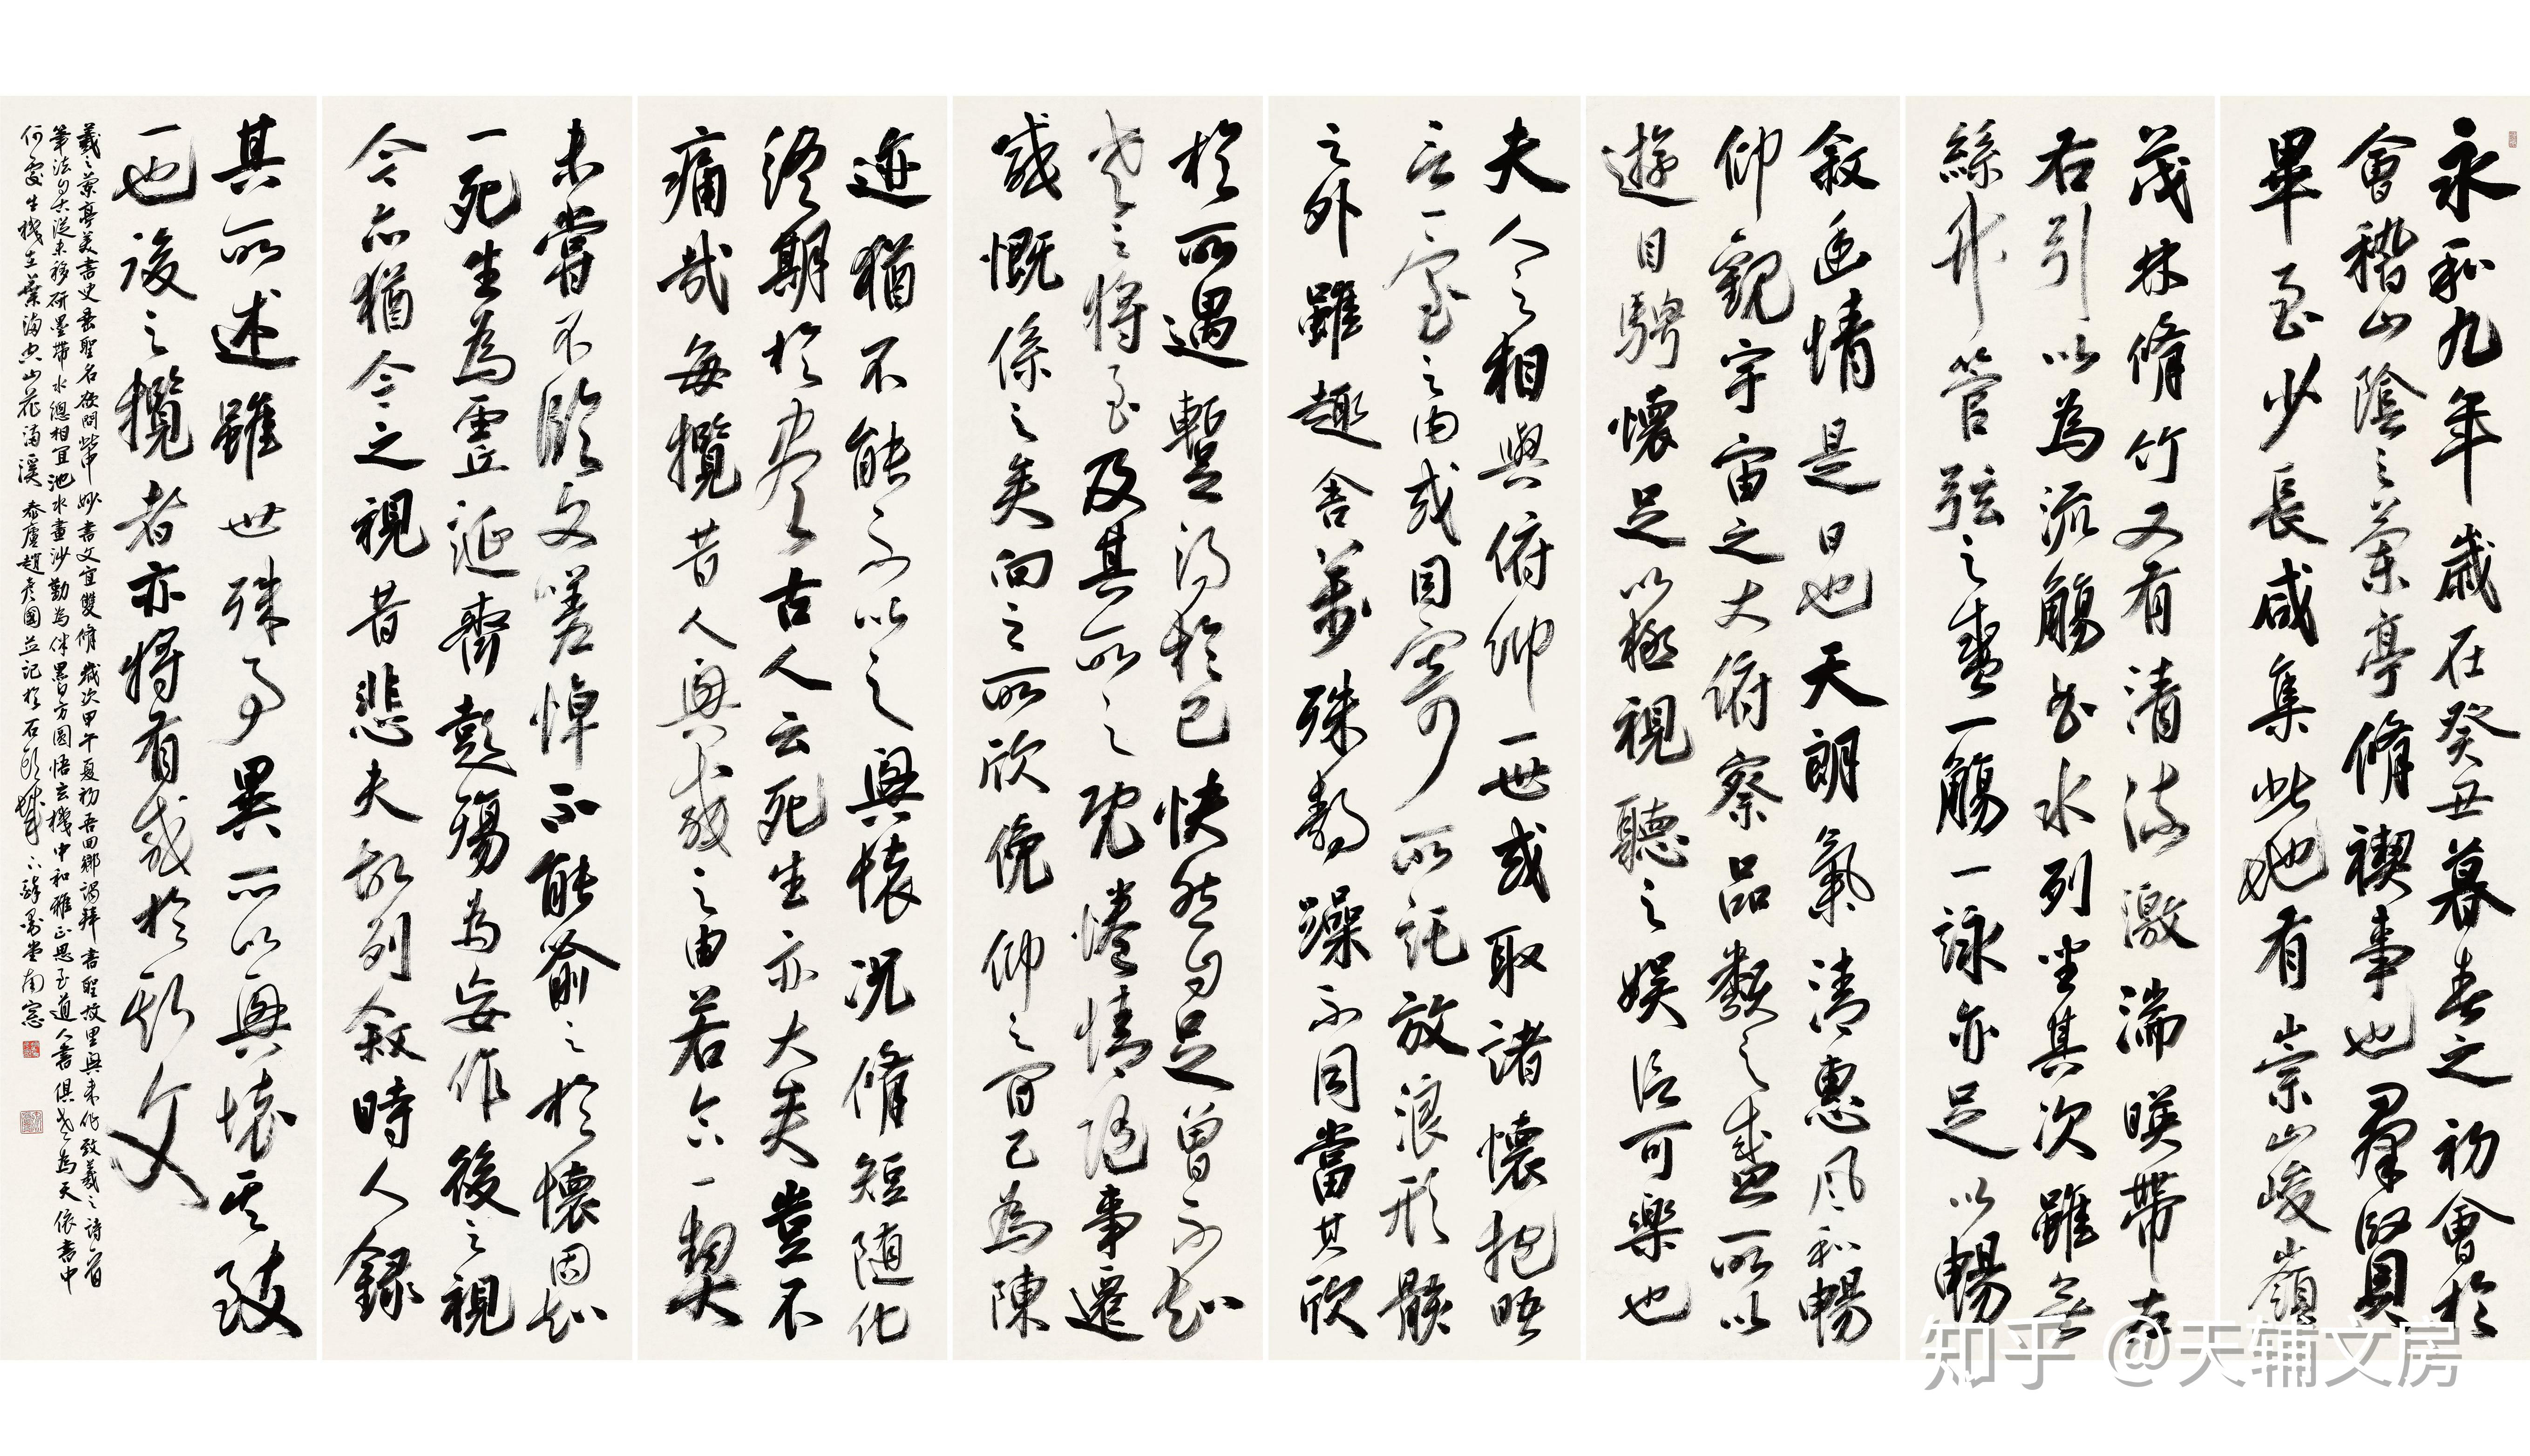 永和九年歲在癸丑暮春之初會於
會稽山陰之蘭亭脩禊事也羣賢
畢至少長咸集此地有崇山峻嶺
茂林脩竹又有清流激湍暎帶左
右引以為流觴曲水列坐其次雖無
絲竹管弦之盛一觴一詠亦足以暢
敘幽情是日也天朗氣清惠風和暢
仰觀宇宙之大俯察品類之盛所以
遊目騁懷足以極視聽之娛信可樂也
夫人之相與俯仰一世或取諸懷抱晤
言一室之內或因寄所託放浪形骸
之外雖趣舍萬殊靜躁不同當其欣
於所遇暫得於己快然自足曾不知
老之將至及其所之既惓情隨事遷
感慨係之矣向之所欣俛仰之間已為陳
迹猶不能不以之興懷況脩短隨化
終期於盡古人云死生亦大矣豈不
痛哉每攬昔人興感之由若合一契
未嘗不臨文嗟悼不能喻之於懷固知
一死生為虛誕齊彭殤為妄作後之視
今亦猶今之視昔悲夫故列敘時人錄
其所述雖世殊事異所以興懷其致
一也後之攬者亦將有感於斯文
羲之蘭亭美書史垂聖名欲問中妙書文宜雙脩歲次甲午夏初吾回鄉謁拜書聖故里與來作致羲之詩一首
筆法自古從未移研墨帶水總相宜池水畫沙勤為伴墨白方圓悟玄機中和雅正思至道人書俱老為天依書中
何處生機在葉海山花滿溪趙彥國並記於石頭城南窗
知乎 @天辅文房